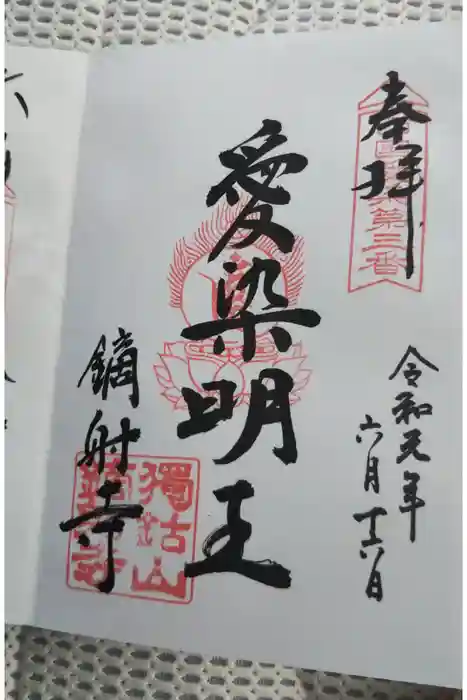 奉拝
第三番
令和元年
六月十六日
愛染明王
鏑射寺
獨鈷山
鏑射寺